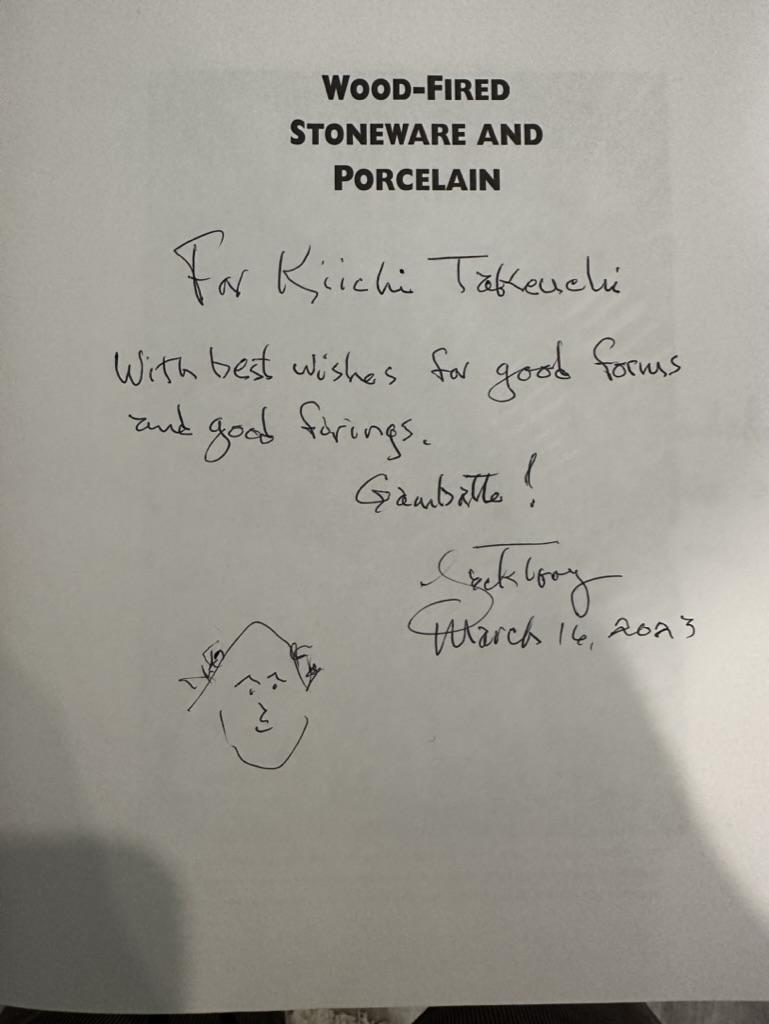 WOOD-FIRED
STONEWARE AND
PORCELAIN
For Kiichi Takeuchi
With best wishes for good forms
and good firings.
Gambatte!
Jack Troy
March 16, 2023